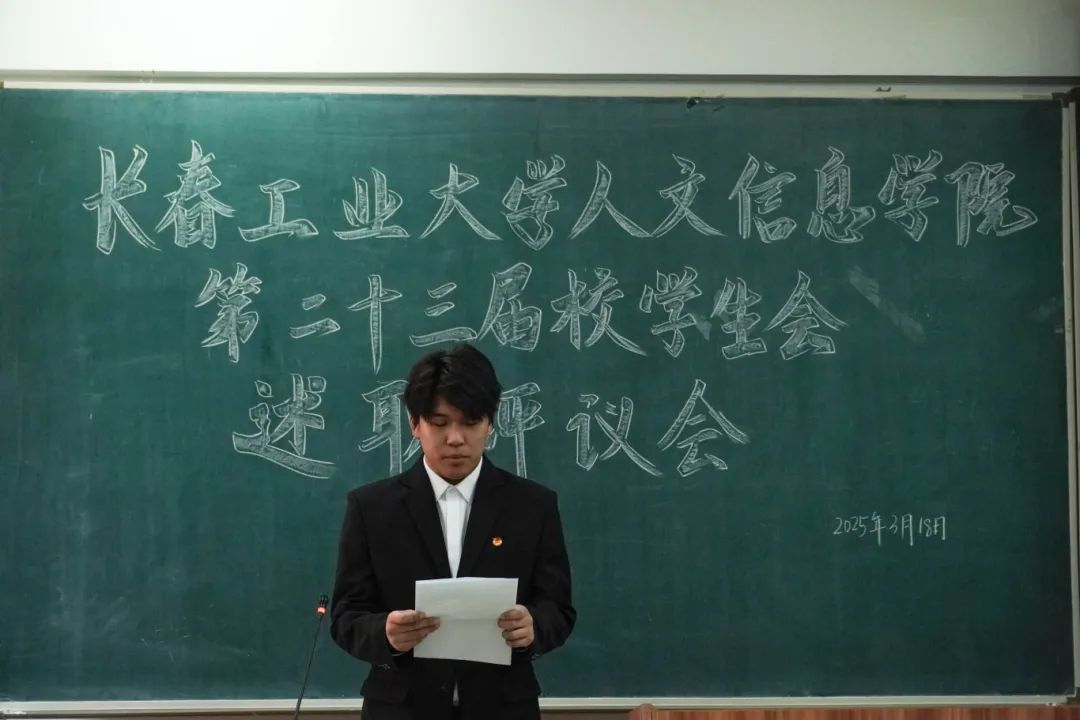 长春工业大学人文信息学院
第二十三届校学生会
述职评议会
2025年3月18日